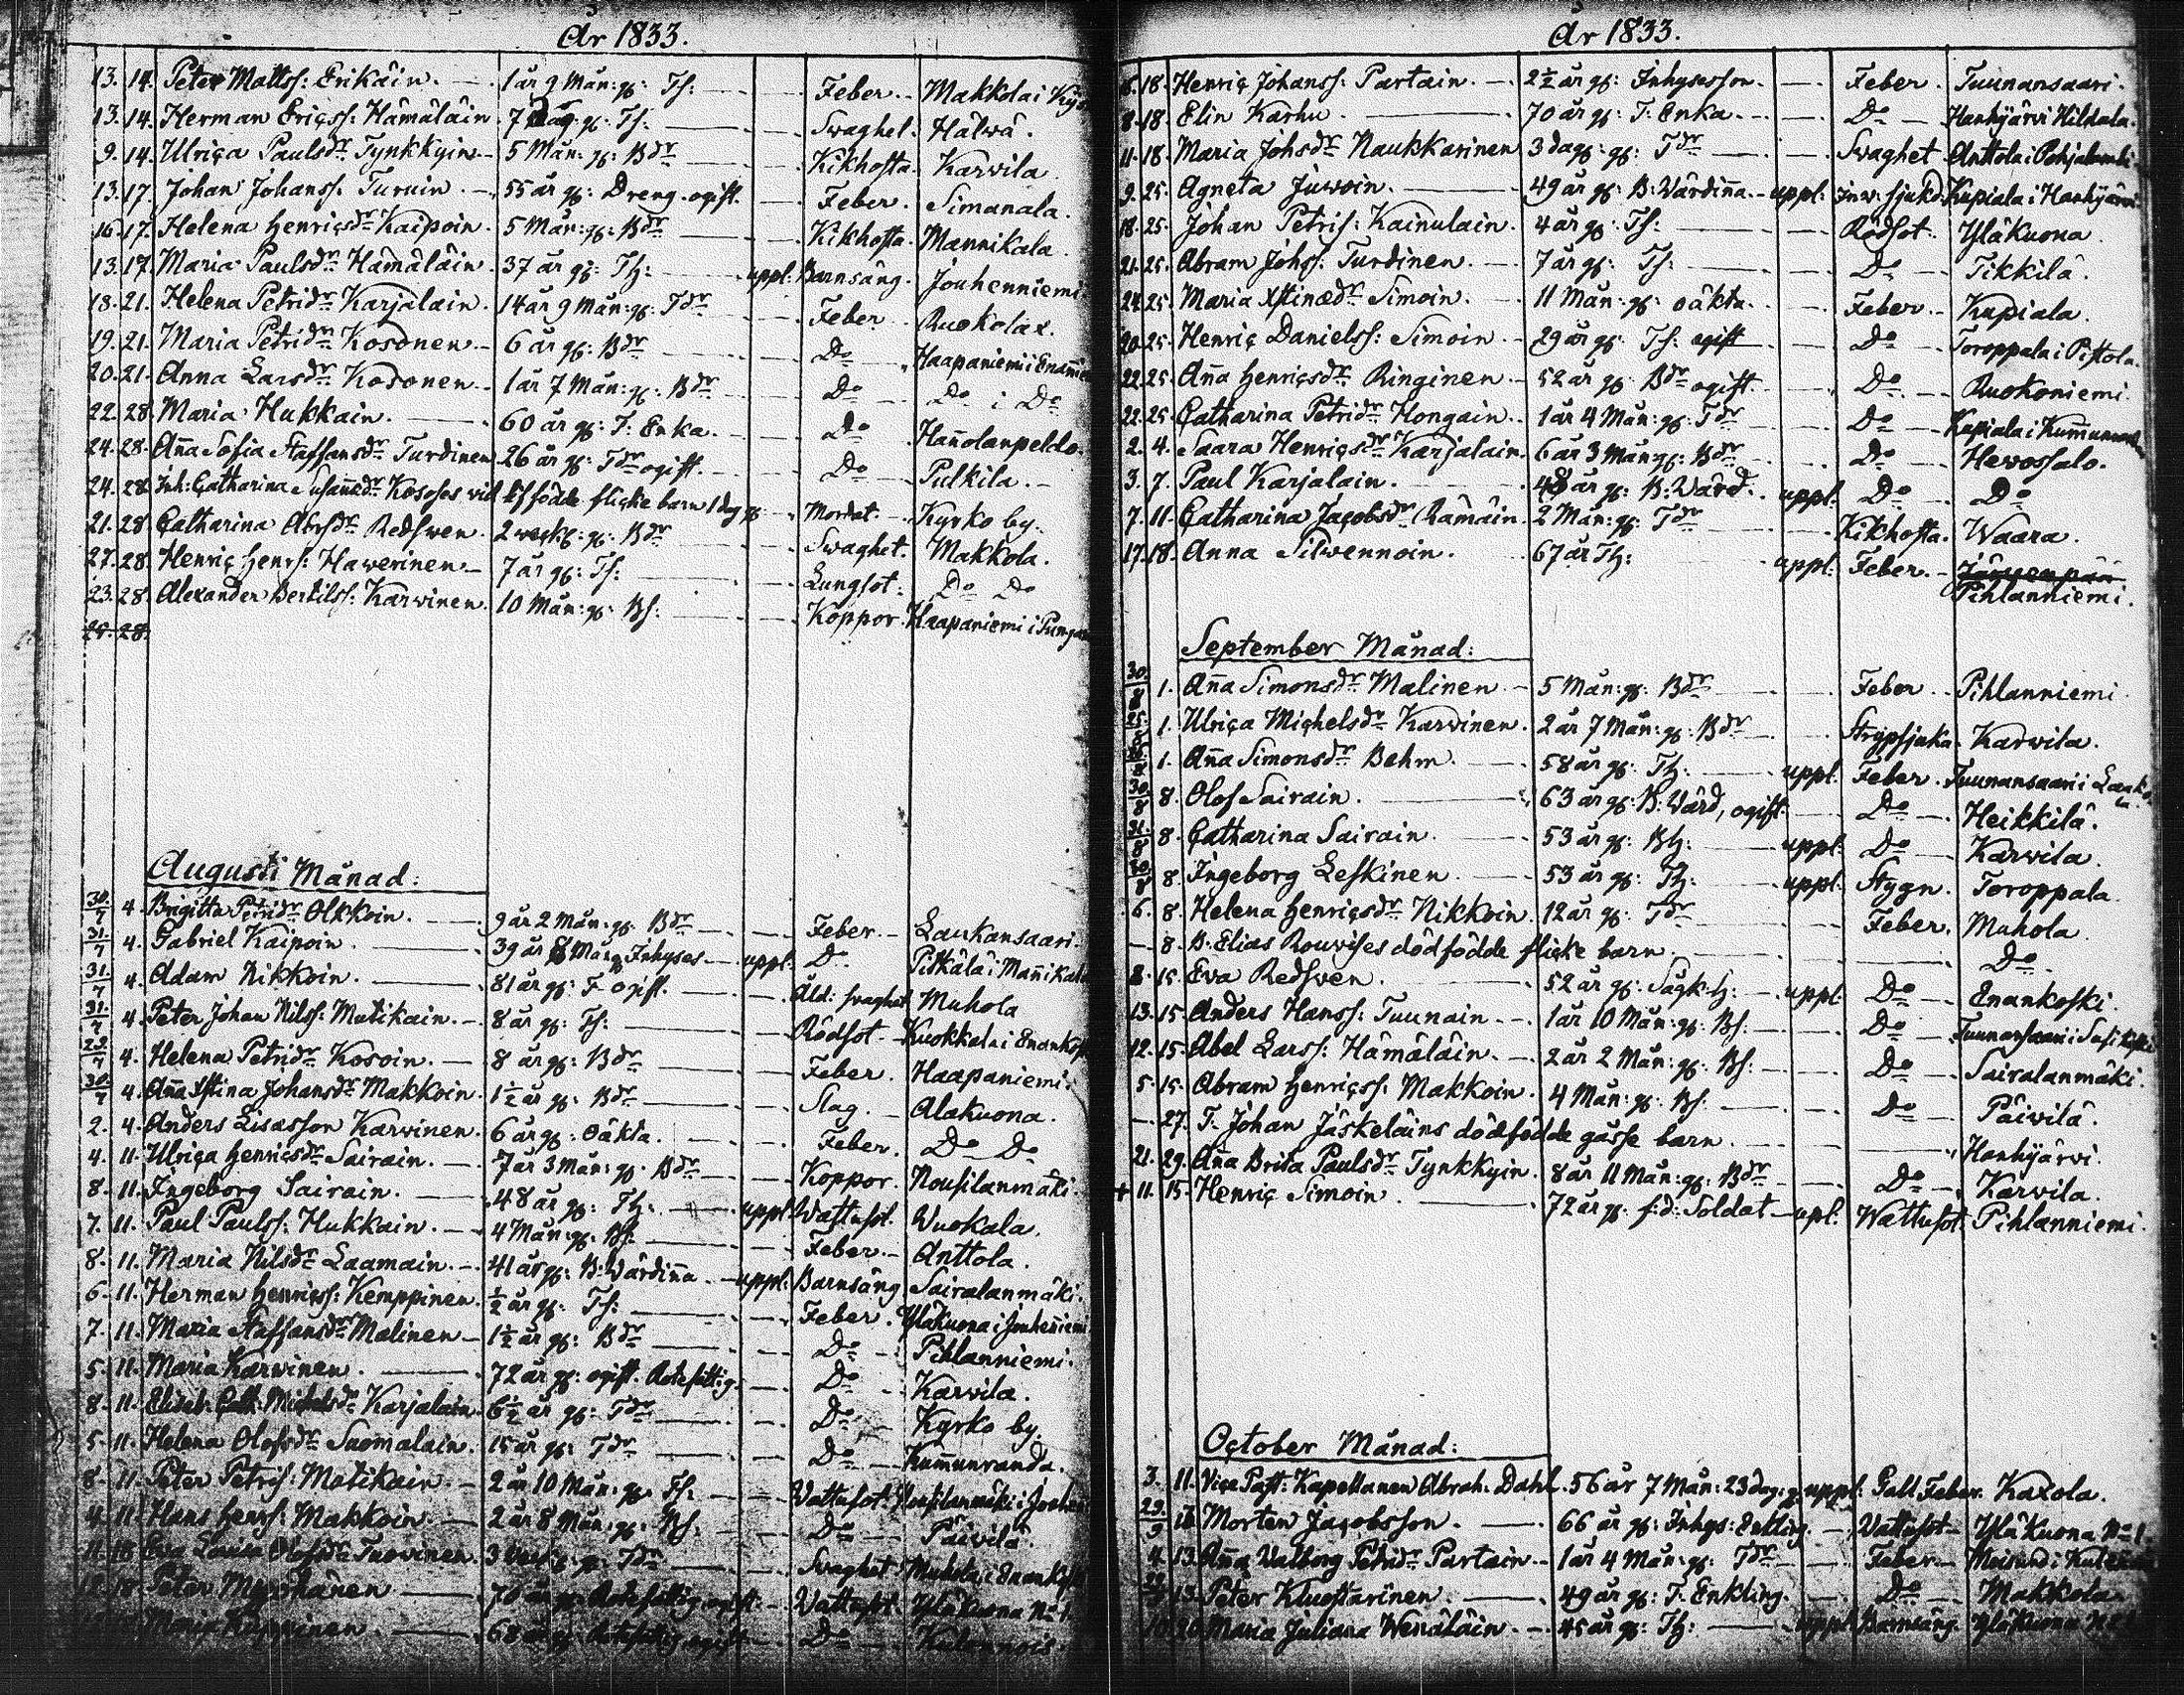 År 1833.
13. 14. Peter Matts: Erikäin. 1 år 9 Mån: gl: Ts: Feber. Makkola i
13. 14. Herman Erics: Hämäläin. 7 Dag. gl: Ts: Svaghet. Hälwä.
9. 14. Ulrica Paulsdr Tynkkyin. 5 Mån: gl: Bdr Kikhosta. Karvila.
13. 17. Johan Johans: Turuin. 55 år gl: Dreng. ogift. Feber. Simanala.
16. 17. Helena Henricsdr Kaipoin. 5 Mån: gl: Bdr Kikhosta. Mannikala.
13. 17. Maria Paulsdr Hämäläin. 37 år gl: Th: uppl. Barnsäng. Jouhenniemi.
18. 21. Helena Petridr Karjalain. 14 år 9 Mån: gl: Tdr Feber. Ruokolax.
19. 21. Maria Petridr Kosonen. 6 år gl: Bdr Do Haapaniemi i
20. 21. Anna Larsdr Kodonen. 1 år 7 Mån: gl: Bdr Do Do i Do
22. 28. Maria Hukkain. 60 år gl: T: Enka. Do Hañolanpeldo.
24. 28. Aña Sofia Staffansdr Turdinen 26 år gl: Tdr ogift. Do Pulkila.
24. 28. Inh: Catharina Susañedr Kososes födde flicke barn 1 dag gl. Mordat. Kyrko by.
21. 28. Catharina Abrsdr Redsven. 2 weck: gl: Bdr Svaghet. Makkola.
27. 28. Henric Henrs: Hawerinen. 7 år gl: Ts: Lungsot. Do Do
23. 28. Alexander Bertils: Karvinen. 10 Mån: gl: Bs: Koppor. Haapaniemi i
25. 28.
Augusti Månad:
30/7 4. Brigitta Petridr Olkkoin. 9 år 2 Mån: gl: Bdr Feber. Laukansaari.
31/7 4. Gabriel Kaipoin. 39 år 8 Mån Inhyses uppl. Do Pitkälä i
31/7 4. Adam Nikkoin. 81 år gl: T. ogift. Åld: svaghet Muhola
31/7 4. Peter Johan Nils: Matikain. 8 år gl: Ts: Rödsot. Kuokkala i
29/7 4. Helena Petridr Kosoin. 8 år gl: Bdr Feber. Haapaniemi.
30/7 4. Aña Xstina Johansdr Makkoin. 1½ år gl: Bdr Slag. Alakuona.
2. 4. Anders Lisasson Karvinen. 6 år gl: Oäkta. Feber. Do Do
4. 11. Ulrica Henricsdr Sairain. 7 år 3 Mån: gl: Bdr Koppor. Nousilanmäki.
8. 11. Ingeborg Sairain. 48 år gl: Th: uppl Wattusot. Wuokala.
7. 11. Paul Pauls: Hukkain. 4 Mån: gl: Bs: Feber. Anttola.
8. 11. Maria Nilsdr Laamain. 41 år gl: B: Wärdiña uppl: Barnsäng Sairalanmäki.
6. 11. Herman Henrics: Kemppinen. ½ år gl: Ts: Feber. Yläkuona i Jouheñiemi
7. 11. Maria Staffansdr Malinen 1½ år gl: Bdr Do Pihlanniemi.
5. 11. Maria Karvinen. 72 år gl: ogift. Rotefattig. Do Karvila.
8. 11. Elisab: Cath: Michelsdr Karjalain. 6½ år gl: Tdr Do Kyrko by.
5. 11. Helena Olofsdr Suomalain. 15 år gl: Tdr Do Kum̃unranda.
8. 11. Peter Petris: Matikain 2 år 10 Mån: gl: Ts: Wattusot. Nousilanmäki i
4. 11. Hans Henrs: Makkoin 2 år 8 Mån: gl: Bs: Do Päivilä.
11. 18. Eva Lovisa Olofsdr Tuovinen. 3 Tdr Svaghet Muhola i
12. 18. Peter Myyrhänen 70 år gl: Rotefattig ogift: Wattusot. Yläkuona No 1.
Maria Kuppinen 68 år gl: Rotefattig ogift Do
År 1833.
6. 18. Henric Johans: Partain. 2½ år gl: Inhysesson. Feber. Tuunansaari.
8. 18. Elin Karhu. 70 år gl: T: Enka. Do Hanhijärvi Hildala.
11. 18. Maria Johsdr Naukkarinen 3 dag: gl: Tdr Svaghet Anttola i Pohjalambi
9. 25. Agneta Juwoin. 49 år gl: B: Wärdiña. uppl: Inv: sjukd. Kupiala i Hanhijärvi
18. 25. Johan Petris: Kainulain. 4 år gl: Ts: Rödsot. Yläkuona
21. 25. Abram Johs: Turdinen. 7 år gl: Ts: Do Tikkilä.
24. 25. Maria Xstinædr Simoin. 11 Mån: gl: oäkta. Feber. Kupiala.
20. 25. Henric Daniels: Simoin. 29 år gl: Ts: ogift Do Toroppala i Pistola.
22. 25. Aña Henricsdr Ringinen 52 år gl: Bdr ogift Do Ruokoniemi.
22. 25. Catharina Petridr Hongain. 1 år 4 Mån: gl: Tdr Do Kupiala i
2. 4. Saara Henricsdr Karjalain. 6 år 3 Mån: gl: Bdr Do Hewossalo.
3. 7. Paul Karjalain. 48 år gl: B: Wärd. uppl: Do Do
7. 11. Catharina Jacobsdr Rämäin. 2 Mån: gl: Tdr Kikhosta. Waara.
17. 18. Anna Silwennoin. 67 år Th: uppl: Feber. Pihlanniemi.
September Månad:
30/8 1. Aña Simonsdr Malinen. 5 Mån: gl: Bdr Feber. Pihlanniemi.
25/8 1. Ulrica Michelsdr Karvinen. 2 år 7 Mån: gl: Bdr Strypsjuka. Karvila.
1. Aña Simonsdr Behm. 58 år gl: Th: uppl: Feber. Tuunansaari i
30/8 8. Olof Sairain. 63 år gl: B: Wärd, ogift. Do Heikkilä.
31/8 8. Catharina Sairain. 53 år gl: Bh: uppl: Do Karvila.
30/8 8. Ingeborg Leskinen. 53 år gl: Th: uppl: Stygn. Toroppala.
6. 8. Helena Henricsdr Nikkoin. 12 år gl: Tdr Feber. Muhola
8. B: Elias Rouvises dödfödde flicke barn. Do
8. 15. Eva Redsven. 52 år gl: Sågk: h: uppl: Do Enankoski.
13. 15. Anders Hans: Tuunain 1 år 10 Mån: gl: Bs: Do Tuunansaari i
12. 15. Abel Lars: Hämäläin. 2 år 2 Mån: gl: Bs: Do Sairalanmäki.
5. 15. Abram Henrics: Makkoin. 4 Mån: gl: Bs: Do Päivilä.
27. T. Johan Jäskeläins dödfödde gåsse barn. Hanhijärvi.
21. 29. Aña Brita Paulsdr Tynkkyin. 8 år 11 Mån: gl: Bdr Do Karvila.
+ 11. 15. Henric Simoin. 72 år gl: f:d: Soldat upl: Wattusot. Pihlanniemi.
October Månad:
3. 11. Vice Past: Kapellanen Abrah: Dahl. 56 år 7 Mån: 23 dag: gl: uppl: Gall Feber. Kaxola.
29/9 Morten Jacobsson. 66 år gl: Inhys: Enkling. Wattusot Yläkuona No 1.
4. 13. Aña Walborg Petridr Partain 1 år 4 Mån: gl: Tdr Feber
13. Peter Kluostarinen. 49 år gl: T. Enkling. Do Makkola.
10. 20. Maria Juliana Wenäläin. 45 år gl: Th: uppl: Barnsäng. Yläkuona